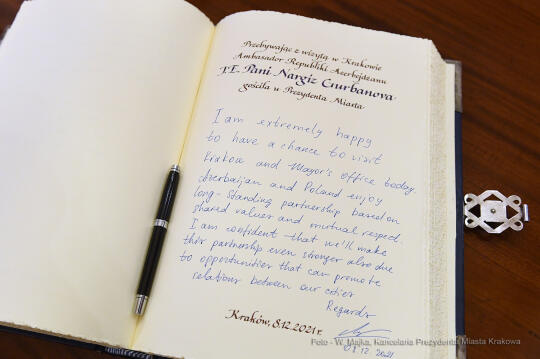 Przebywając z wizytą w Krakowie
Ambasador Republiki Azerbejdżanu
J.E. Pani Nargiz Gurbanova
gościła u Prezydenta Miasta
I am extremely happy
to have a chance to visit
Krakow and Mayor's office today.
Azerbaijan and Poland enjoy
long-standing partnership based on
shared values and mutual respect.
I am confident that we'll make
this partnership even stronger also due
to opportunities that can promote
relations between our cities
Regards
Kraków, 8.12.2021 r.
12 2021
Foto - W. Majka, Kancelaria Prezydenta Miasta Krakowa